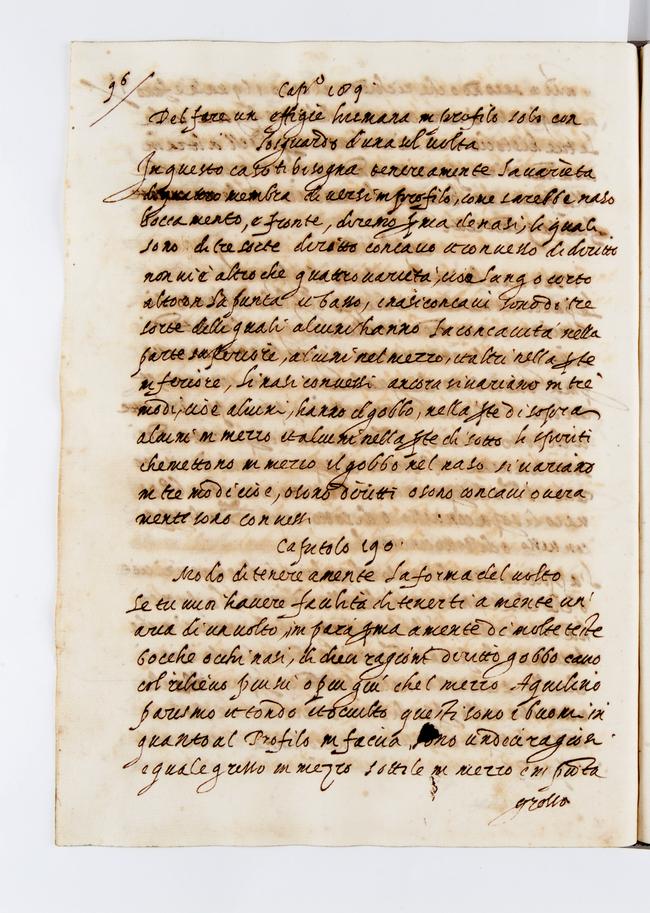 96
Cap.º 189
Del fare un effigie humana in Profilo solo con
lo sguardo d'una sol volta
In questo caso ti bisogna tenere a mente la varieta
di quattro membra diversi in profilo, come sarebbe naso
bocca mento, e fronte, diremo pma de nasi, li quali
sono di tre sorte diritto concavo et convesso di diritti
non vi è altro che quattro varieta, cioè lungo corto
alto con la punta et basso, i nasi concavi sono di tre
sorte delle quali alcuni hanno la concavità nella
parte superiore, alcuni nel mezzo, et altri nella pte
inferiore, li nasi convessi ancora si variano in tre
modi, cioè alcuni, hanno il gobbo, nella pte di sopra
alcuni in mezzo et alcuni nella pte di sotto li
che mettono in mezzo il gobbo nel naso si variano
in tre modi cioè, o sono diritti o sono concavi overa
mente sono convessi
Capitolo 190
Modo di tenere a mente la forma del volto
Se tu vuoi havere facilità di tenerti a mente un'
aria di un volto, impara pma a mente di molte teste
bocche occhi nasi, di dieci ragioni diritto gobbo cavo
col rilievo piu sù o piu giù che l mezzo Aquilino
pari simo et tondo et acuto questi sono i buoni in
quanto al Profilo in facia sono undeci ragioni
eguale grosso in mezzo sottile in mezzo e in
grosso